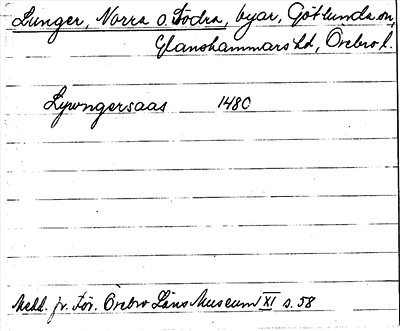 Lunger, Norra o. Södra, byar, Götlunda sn,
Glanshammars hd, Örebro l.
Lywngersaas 1480
Medd. fr. För. Örebro Läns Museum XI s. 58